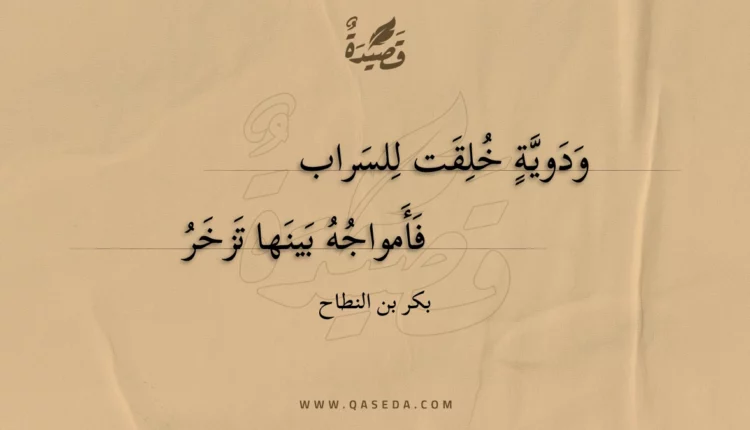 قَصِيْدَةٌ
وَدَويَّةٍ خُلِقَت لِلسَراب
فَأَمواجُهُ بَينَها تَزخَرُ
بكر بن النطاح
WWW.QASEDA.COM